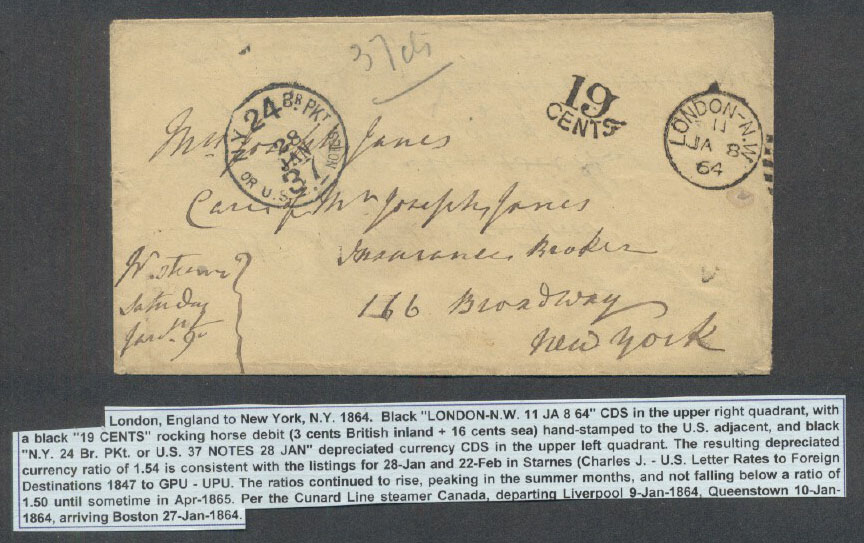 37 cts
N.Y. 24 BR. PKT
28
JAN
OR U.S. 37 NOTES
19
CENTS
LONDON-N.W
11
JA 8
64
Mr Joseph Janes
Care of Mr Joseph Janes
Insurance Broker
166 Broadway
New York
Saturday
London, England to New York, N.Y. 1864. Black "LONDON-N.W. 11 JA 8 64" CDS in the upper right quadrant, with
a black "19 CENTS" rocking horse debit (3 cents British inland + 16 cents sea) hand-stamped to the U.S. adjacent, and black
"N.Y. 24 Br. PKt. or U.S. 37 NOTES 28 JAN" depreciated currency CDS in the upper left quadrant. The resulting depreciated
currency ratio of 1.54 is consistent with the listings for 28-Jan and 22-Feb in Starnes (Charles J. - U.S. Letter Rates to Foreign
Destinations 1847 to GPU - UPU. The ratios continued to rise, peaking in the summer months, and not falling below a ratio of
1.50 until sometime in Apr-1865. Per the Cunard Line steamer Canada, departing Liverpool 9-Jan-1864, Queenstown 10-Jan-
1864, arriving Boston 27-Jan-1864.